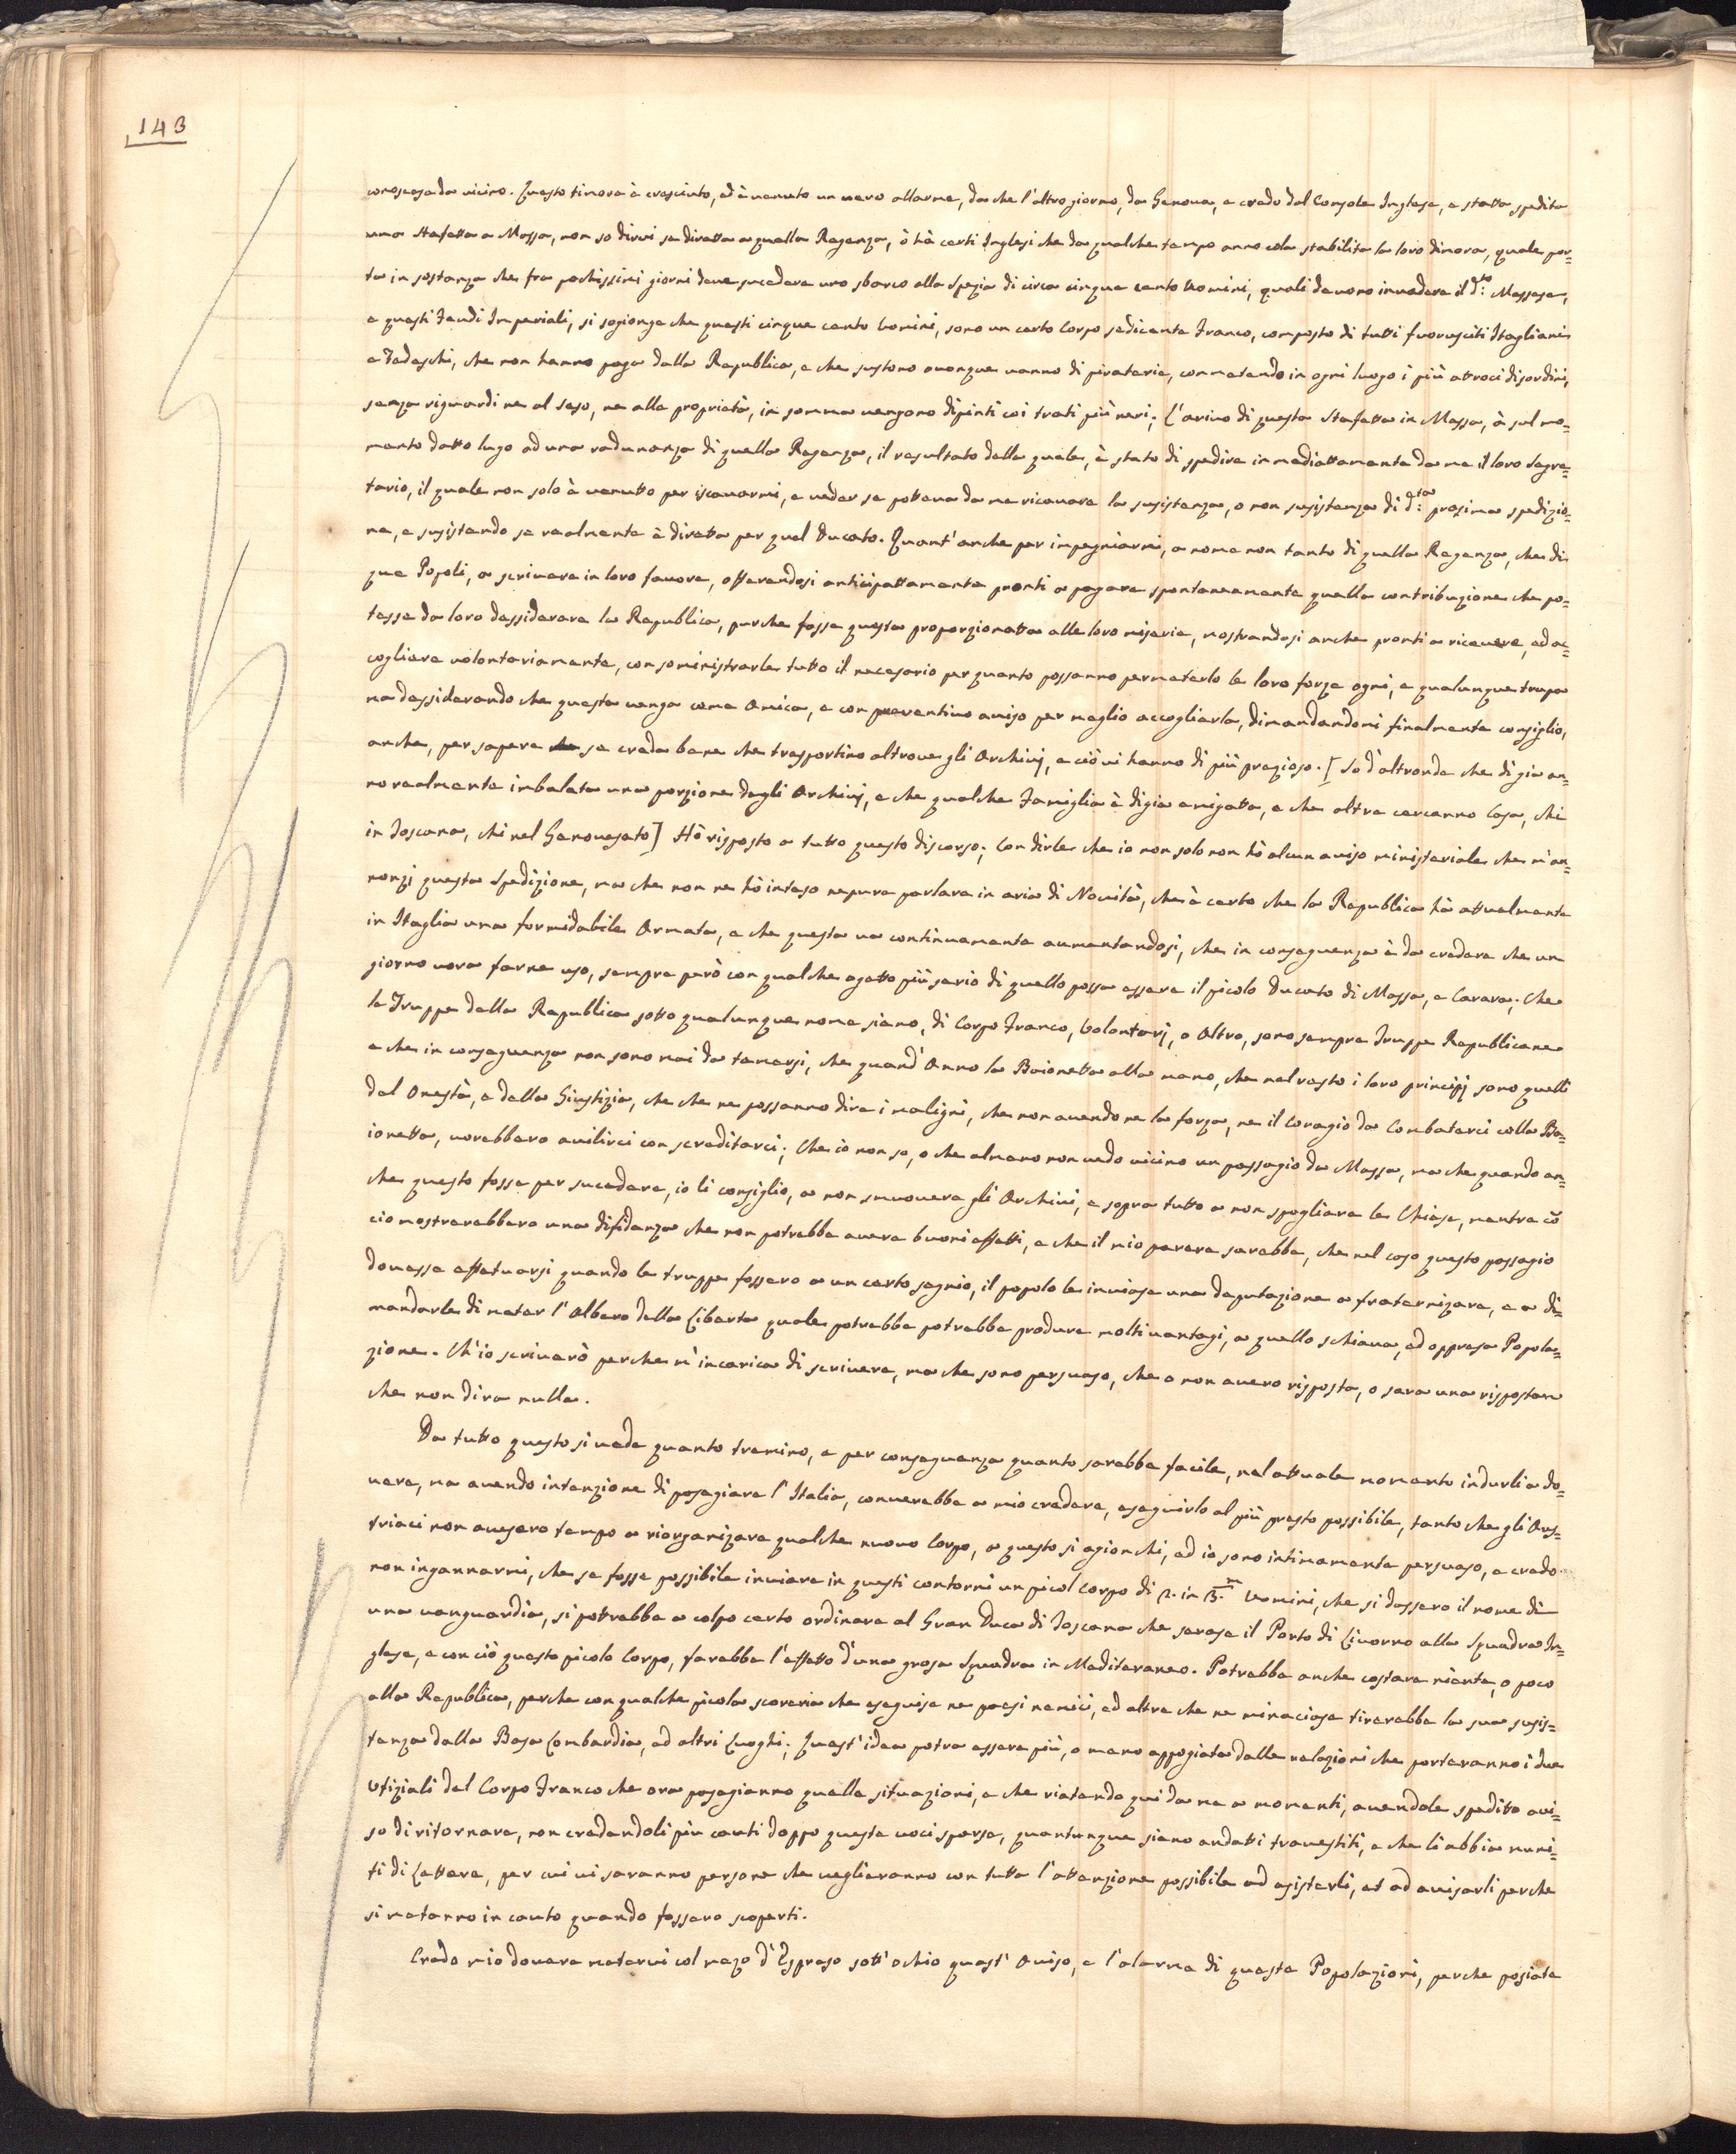 143
conoscese da vicino. Questo timore è cresciuto, ed è venuto un vero allarme, da che l'altro giorno, da Genova, e credo dal Console Inglese, e statta spedita
una stafetta a Massa, non so dirvi se diretta a quella Regenza, ò hà certi Inglesi che da qualche tempo anno cola stabilita la loro dimora, quale por=
ta in sostanza che fra pochissimi giorni deve sucedere uno sbarco alla Spezia di circa cinque cento Uomini, quali devono invadere il d:to Massese,
e questi Feudi Imperiali, si sogionge che questi cinque cento Uomini, sono un certo Corpo sedicente Franco, composto di tutti fuorusciti Itagliani
e Tedeschi, che non hanno paga dalla Republica, e che sustono ovonque vanno di piraterie, commetendo in ogni luogo i più attroci disordini,
senza riguardi ne al seso, ne alla proprietà, in somma vengono dipinti coi trati più neri. L'arivo di questa stafetta in Massa, à sul mo=
mento datto lugo ad una radunanza di quella Regenza, il resultato della quale, è stato di spedire inmediattamente da me il loro Segre=
tario, il quale non solo à venutto per iscavarmi, e veder se poteva da me ricavare la susistenza, o non susistenza di d:ta prosima spedizio=
ne, e susistendo se realmente è diretta per quel Ducato. Quant'anche per impegniarmi, a nome non tanto di quella Regenza, che di
que Popoli, a scrivere in loro favore, offerendosi anticipattamente pronti a pagare spontaneamente quella contribuzione che po=
tesse da loro dessiderare la Republica, purche fosse questa proporzionatta alle loro miserie, mostrandosi anche pronti a ricevere, ed ac=
cogliere volontariamente, con soministrarle tutto il necesario per quanto possanno permeterlo le loro forze ogni, e qualunque trupa
ma dessiderando che questa venga come Amica, e con preventivo aviso per meglio accoglierla, dimandandomi finalmente consiglio,
anche, per sapere se creda bene che trasportino altrove gli Archivj, e ciò vi hanno di più prezioso. [So d'altronde che di gia an=
no realmente imbalata una porzione degli Archivj, e che qualche Famiglia è di gia emigatta, e che altre cercanno Casa, chi
in Toscana, chi nel Genovesato] Hò risposto a tutto questo discorso; Con dirle che io non solo non hò alcun aviso ministeriale che m'an=
nonzi questa Spedizione, ma che non ne hò inteso nepure parlare in aria di Novità, che è certo che la Republica hà attualmente
in Itaglia una formidabile Armata, e che questa va continuamente aumentandosi, che in conseguenza è da credere che un
giorno vora farne uso, sempre però con qualche ogetto più serio di quello possa essere il picolo Ducato di Massa, e Carara; Che
le Truppe della Republica sotto qualunque nome siano, di Corpo Franco, Volontarj, o Altro, sono sempre Truppe Republicane
e che in conseguenza non sono mai da temersi, che quand'Anno la Baionetta alla mano, che nel resto i loro principj sono quelli
del Onestà, e della Giustizia, che che ne possanno dire i maligni, che non avendo ne la forza, ne il Coragio da Combaterci colla Ba=
ionetta, vorebbero avilirci con screditarci; Che io non so, o che almeno non vedo vicino un passagio da Massa, ma che quando an=
che questo fosse per sucedere, io li consiglio, a non smuovere gli Archivi, e sopra tutto a non spogliare le Chiese, mentre co
cio mostrerebbero una difidenza che non potrebbe avere buoni effetti, e che il mio parere sarebbe, che nel caso questo passagio
dovesse effetuarsi quando le truppe fossero a un certo segnio, il popolo le inviase una deputazione a fraternizare, e a di=
mandarle di meter l'Albero della Liberta quale potrebbe potrebbe produre molti vantagi, a quello schiavo, ed oppresa Popola=
zione. Ch'io scriverò perche m'incarica di scrivere, ma che sono persuaso, che o non avero risposta, o sara una risposta
che non dira nulla.
Da tutto questo si vede quanto tremino, e per conseguenza quanto sarebbe facile, nel attuale momento indurli a do=
nare, ma avendo intenzione di posegiare l'Italia, converebbe a mio credere, eseguirlo al più presto possibile, tanto che gli Aus=
triaci non avesero tempo a riorganizare qualche nuovo Corpo, a questo si agionchi, ed io sono intimamente persuaso, e credo
non ingannarmi, che se fosse possibile inviare in questi contorni un picol corpo di 2. in 3.m Uomini, che si dassero il nome di
una vanguardia, si potrebbe a colpo certo ordinare al Gran Duca di Toscana che serase il Porto di Livorno alla Squadra In=
glese, e con ciò questo picolo Corpo, farebbe l'effetto d'una grosa Squadra in Mediteraneo. Potrebbe anche costare niente, o poco
alla Republica, perche con qualche picola scoreria che eseguise ne paesi nemici, ed altre che ne minaciase tirerebbe la sua susis=
tenza dalla Basa Lombardia, ed altri Luoghi; Quest'idea potra essere più, o meno appogiata dalle relazioni che porteranno i due
Ufiziali del Corpo Franco che ora posegianno quelle situazioni, e che riatendo qui da me a momenti, avendole spedito avi=
so di ritornare, non credendoli più cauti doppo queste voci sparse, quantunque siano andatti travestiti, e che li abbia muni=
ti di Lettere, per cui vi saranno persone che veglieranno con tutta l'attenzione possibile ad asisterli, et ad avisarli perche
si metanno in cauto quando fossero scoperti.
Credo mio dovere metervi col mezo d'Espreso sott'ochio quest'Aviso, e l'alarme di queste Popolazioni, perche posiate